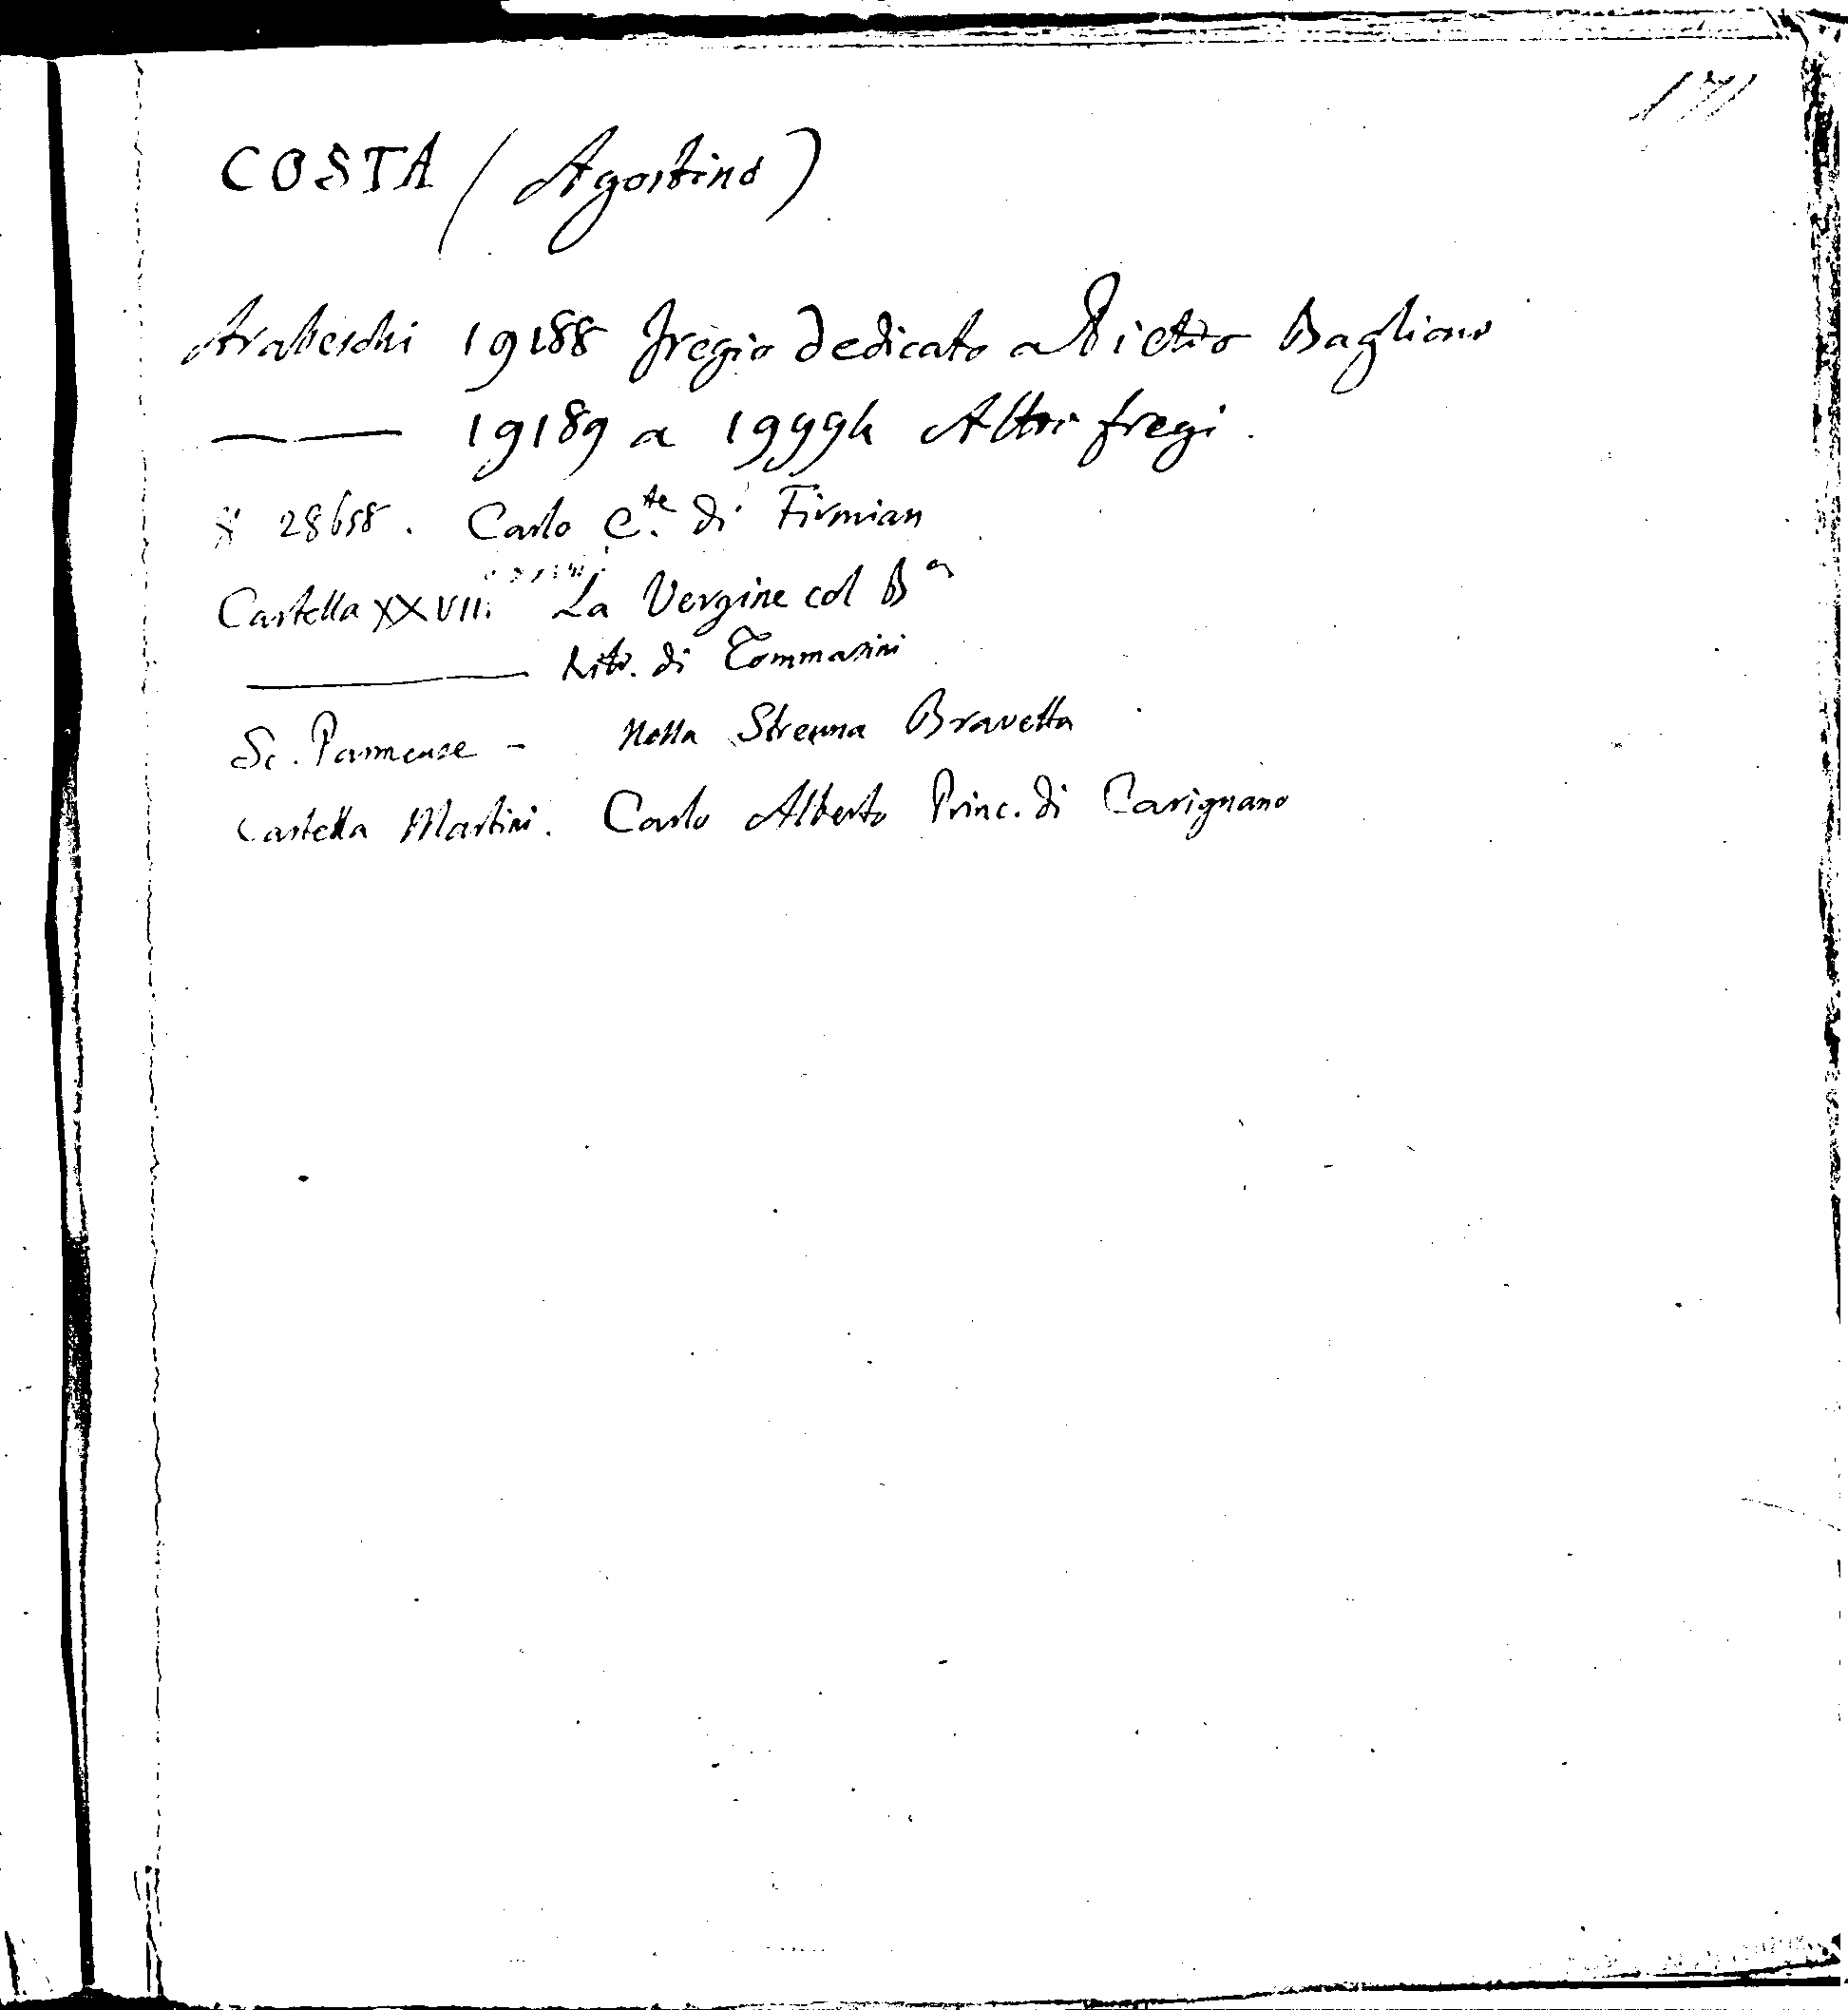 171
COSTA (Agostino)
Arabeschi 19188 Fregio dedicato a Pietro Baglione
—— 19189 a 19994 Altri fregi.
* 28658. Carlo C.te di Firmian
Cartella XXVII. La Vergine col Bo
—— Ritr. di Tommasini
Sc. Parmense - Nella Strenna Bravetta
Cartella Martini. Carlo Alberto Princ. di Carignano